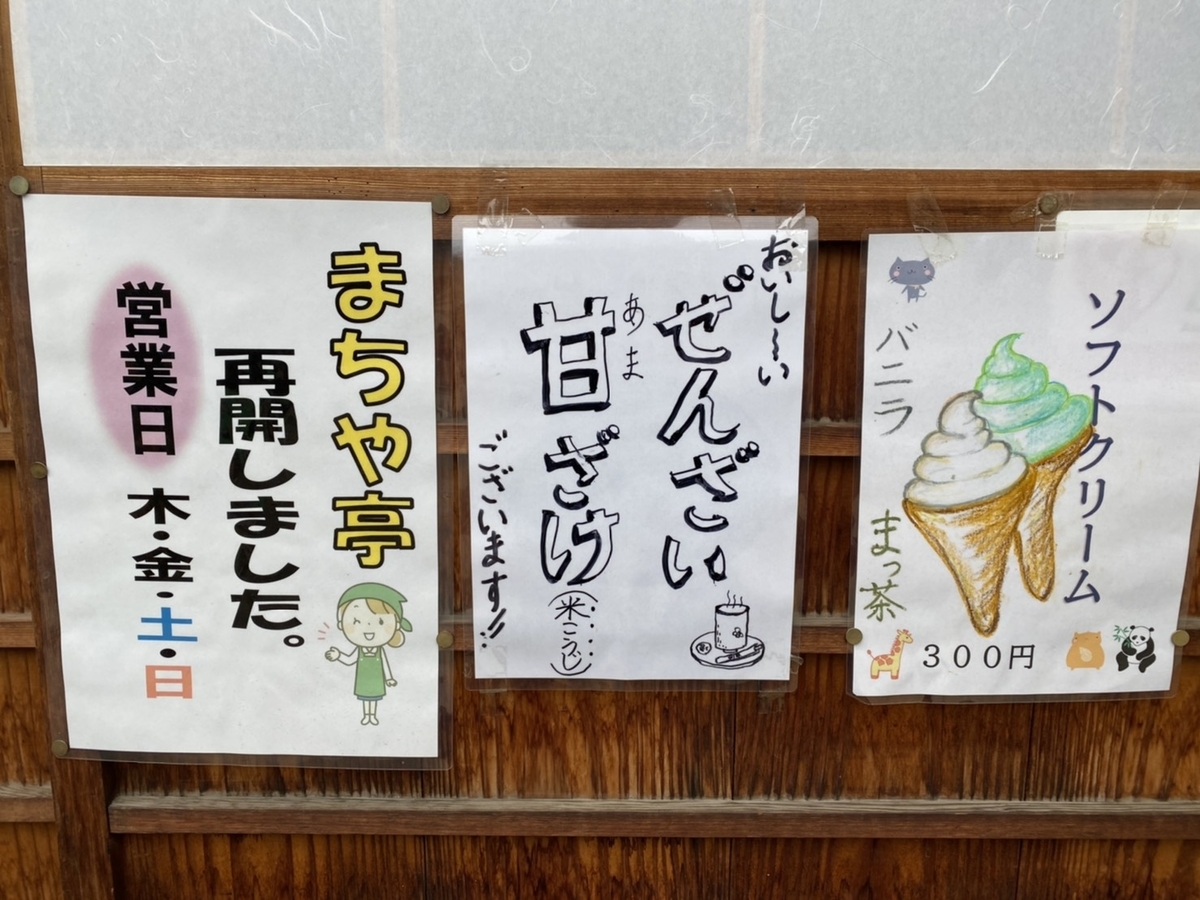 まちや亭
再開しました。
営業日 木・金・土・日
おいし〜い
ぜんざい
あま
甘ざけ(米こうじ)
ございます!!
ソフトクリーム
バニラ
まっ茶
300円